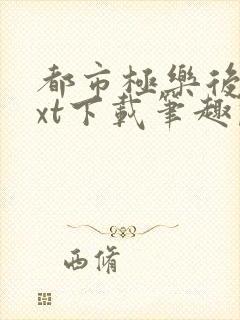 都市極樂後
xt下載筆趣
西脩